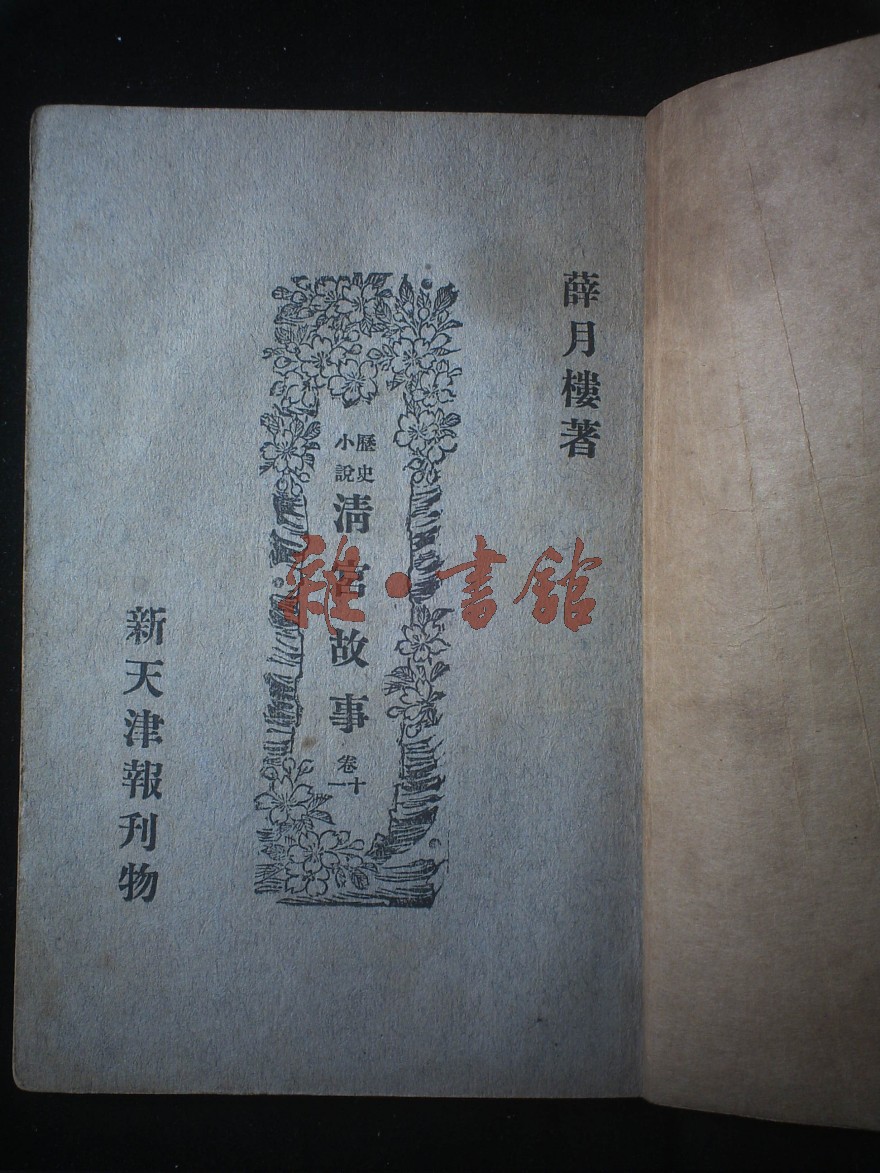 薛月樓著
歷史小說
清宮故事
卷十一
新天津報刊物
雜·書館